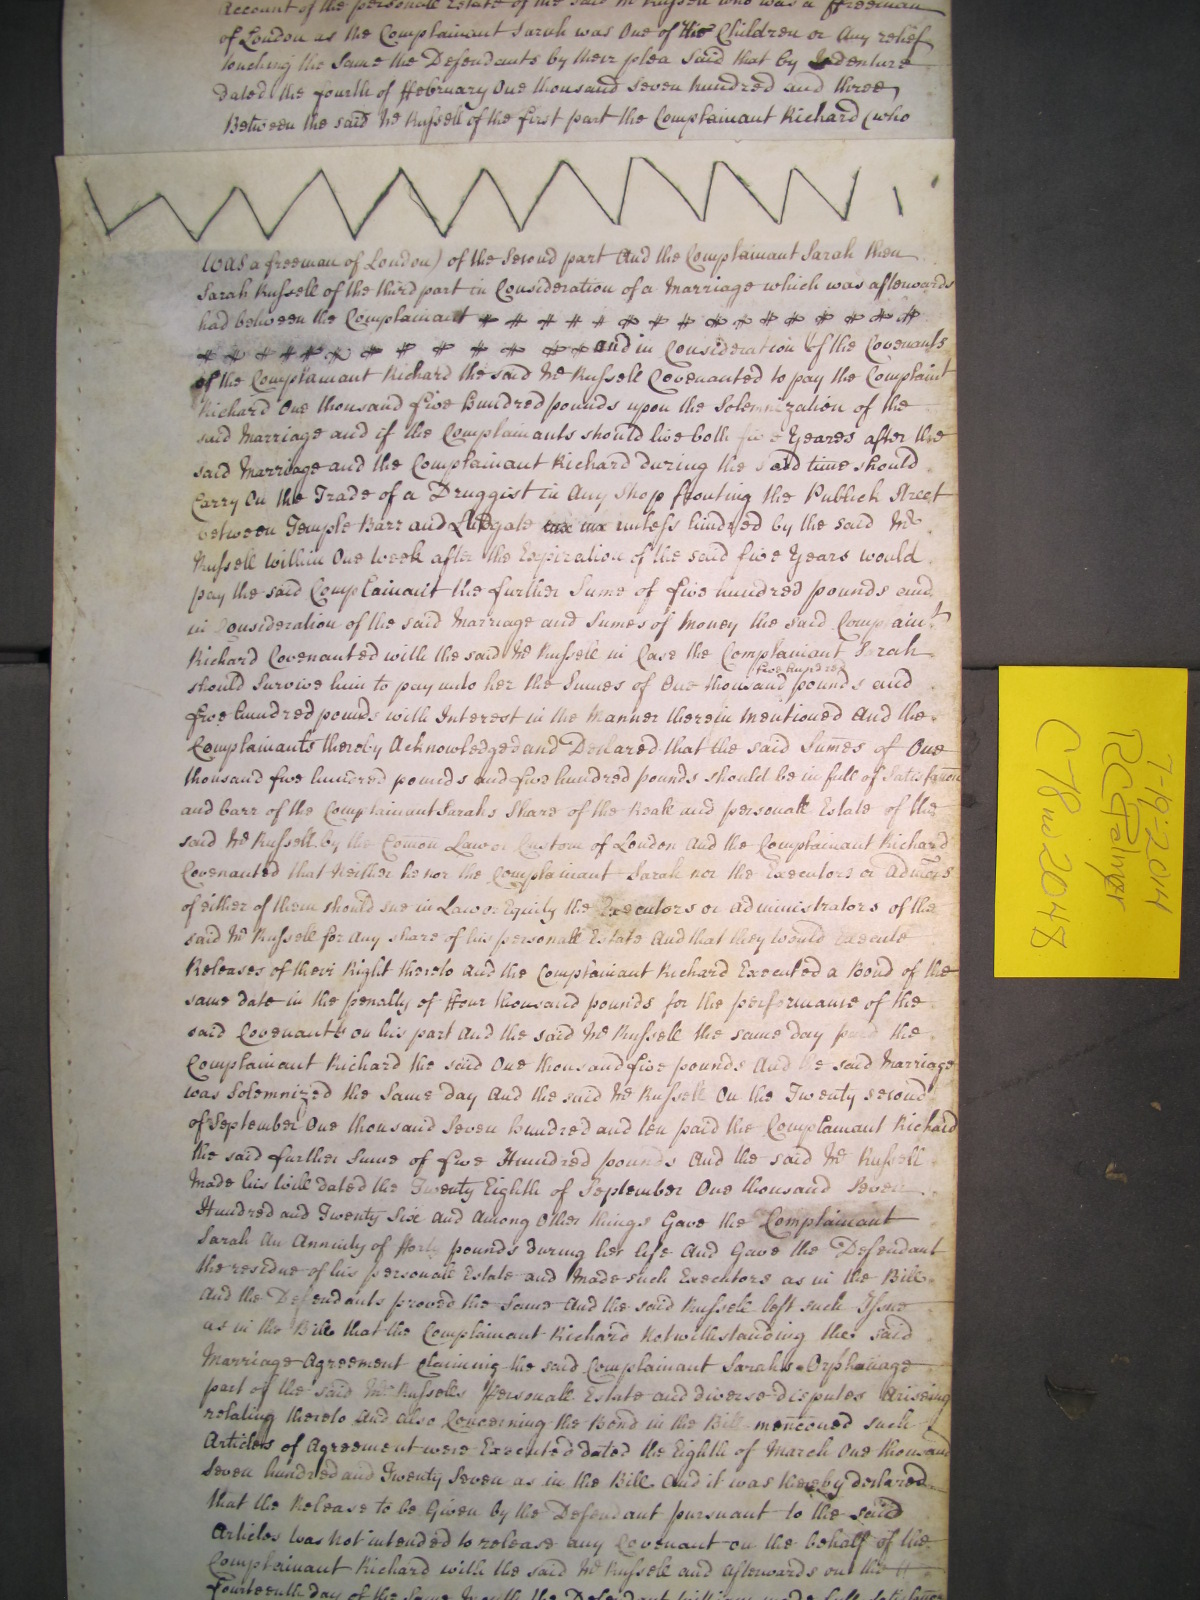 Account of the personall Estate of the said Mr Russell who was a ffreeman
of London as the Complainant Sarah was One of the Children or Any relief
touching the Same the Defendants by their plea Said that by Indenture
dated the fourth of ffebruary One thousand Seven hundred and three
Between the said Mr Russell of the first part the Complainant Richard (who
was a freeman of London) of the Second part And the Complainant Sarah then
Sarah Russell of the third part in Consideration of a Marriage which was afterwards
had between the Complainant
and in Consideration of the Covenants
of the Complainant Richard the said Mr Russell Covenanted to pay the Complaint
Richard One thousand five Hundred pounds upon the Solemnization of the
said Marriage and if the Complainants should live both five Yeares after the
said Marriage and the Complainant Richard during the said time should
Carry On the Trade of a Druggist in Any Shop fronting the Publick Street
between Temple Barr and Ludgate unless hindred by the said Mr
Russell within One week after the Expiration of the said five Years would
pay the said Complainant the further Sume of five hundred pounds and
in Consideration of the said Marriage and Sumes of Money the said Complaint
Richard Covenanted with the said Mr Russell in Case the Complainant Sarah
should Survive him to pay unto her the Sumes of One thousand five hundred pounds and
five hundred pounds with Interest in the Manner therein mentioned And the
Complainants thereby Acknowledged and Declared that the said Sumes of One
thousand five hundred pounds and five hundred pounds should be in full of Satisfaccon
and barr of the Complainant Sarahs Share of the Reall and personall Estate of the
said Mr Russell by the Comon Law or Custom of London And the Complainant Richard
Covenanted that Neither he nor the Complainant Sarah nor the Executors or Admors
of either of them should sue in Law or Equity the Executors or Administrators of the
said Mr Russell for Any share of his personall Estate And that they would Execute
Releases of their Right thereto And the Complainant Richard Executed a Bond of the
same date in the penalty of ffour thousand pounds for the performance of the
said Covenants on his part And the said Mr Russell the same day paid the
Complainant Richard the said One thousand five pounds And the said Marriage
was Solemnized the Same day And the said Mr Russell On the Twenty second
of September One thousand Seven hundred and ten paid the Complainant Richard
the said further Sume of five Hundred pounds And the said Mr Russell
Made his Will dated the Twenty Eighth of September One thousand Seven
Hundred and Twenty Six And Among Other things Gave the Complainant
Sarah An Annuity of fforty pounds during her life And Gave the Defendant
the residue of his personall Estate and Made such Executors as in the Bill
And the Defendants proved the Same And the said Russell left such Issue
as in the Bill that the Complainant Richard Notwithstanding the said
Marriage Agreement Claiming the said Complainant Sarahs Orphanage
part of the said Mr Russells Personall Estate and diverse disputes Ariseing
relating thereto And also Concerning the Bond in the Bill mentioned such
Articles of Agreement were Executed dated the Eighth of March One thousand
Seven hundred and Twenty Seven as in the Bill And it was thereby declared
that the Release to be Given by the Defendant pursuant to the said
Articles was Not intended to release any Covenant on the behalf of the
Complainant Richard with the said Mr Russell and Afterwards on the
fourteenth day of the Same Month the Defendant William made full
7-19-2014
RCPalmer
C78no2048